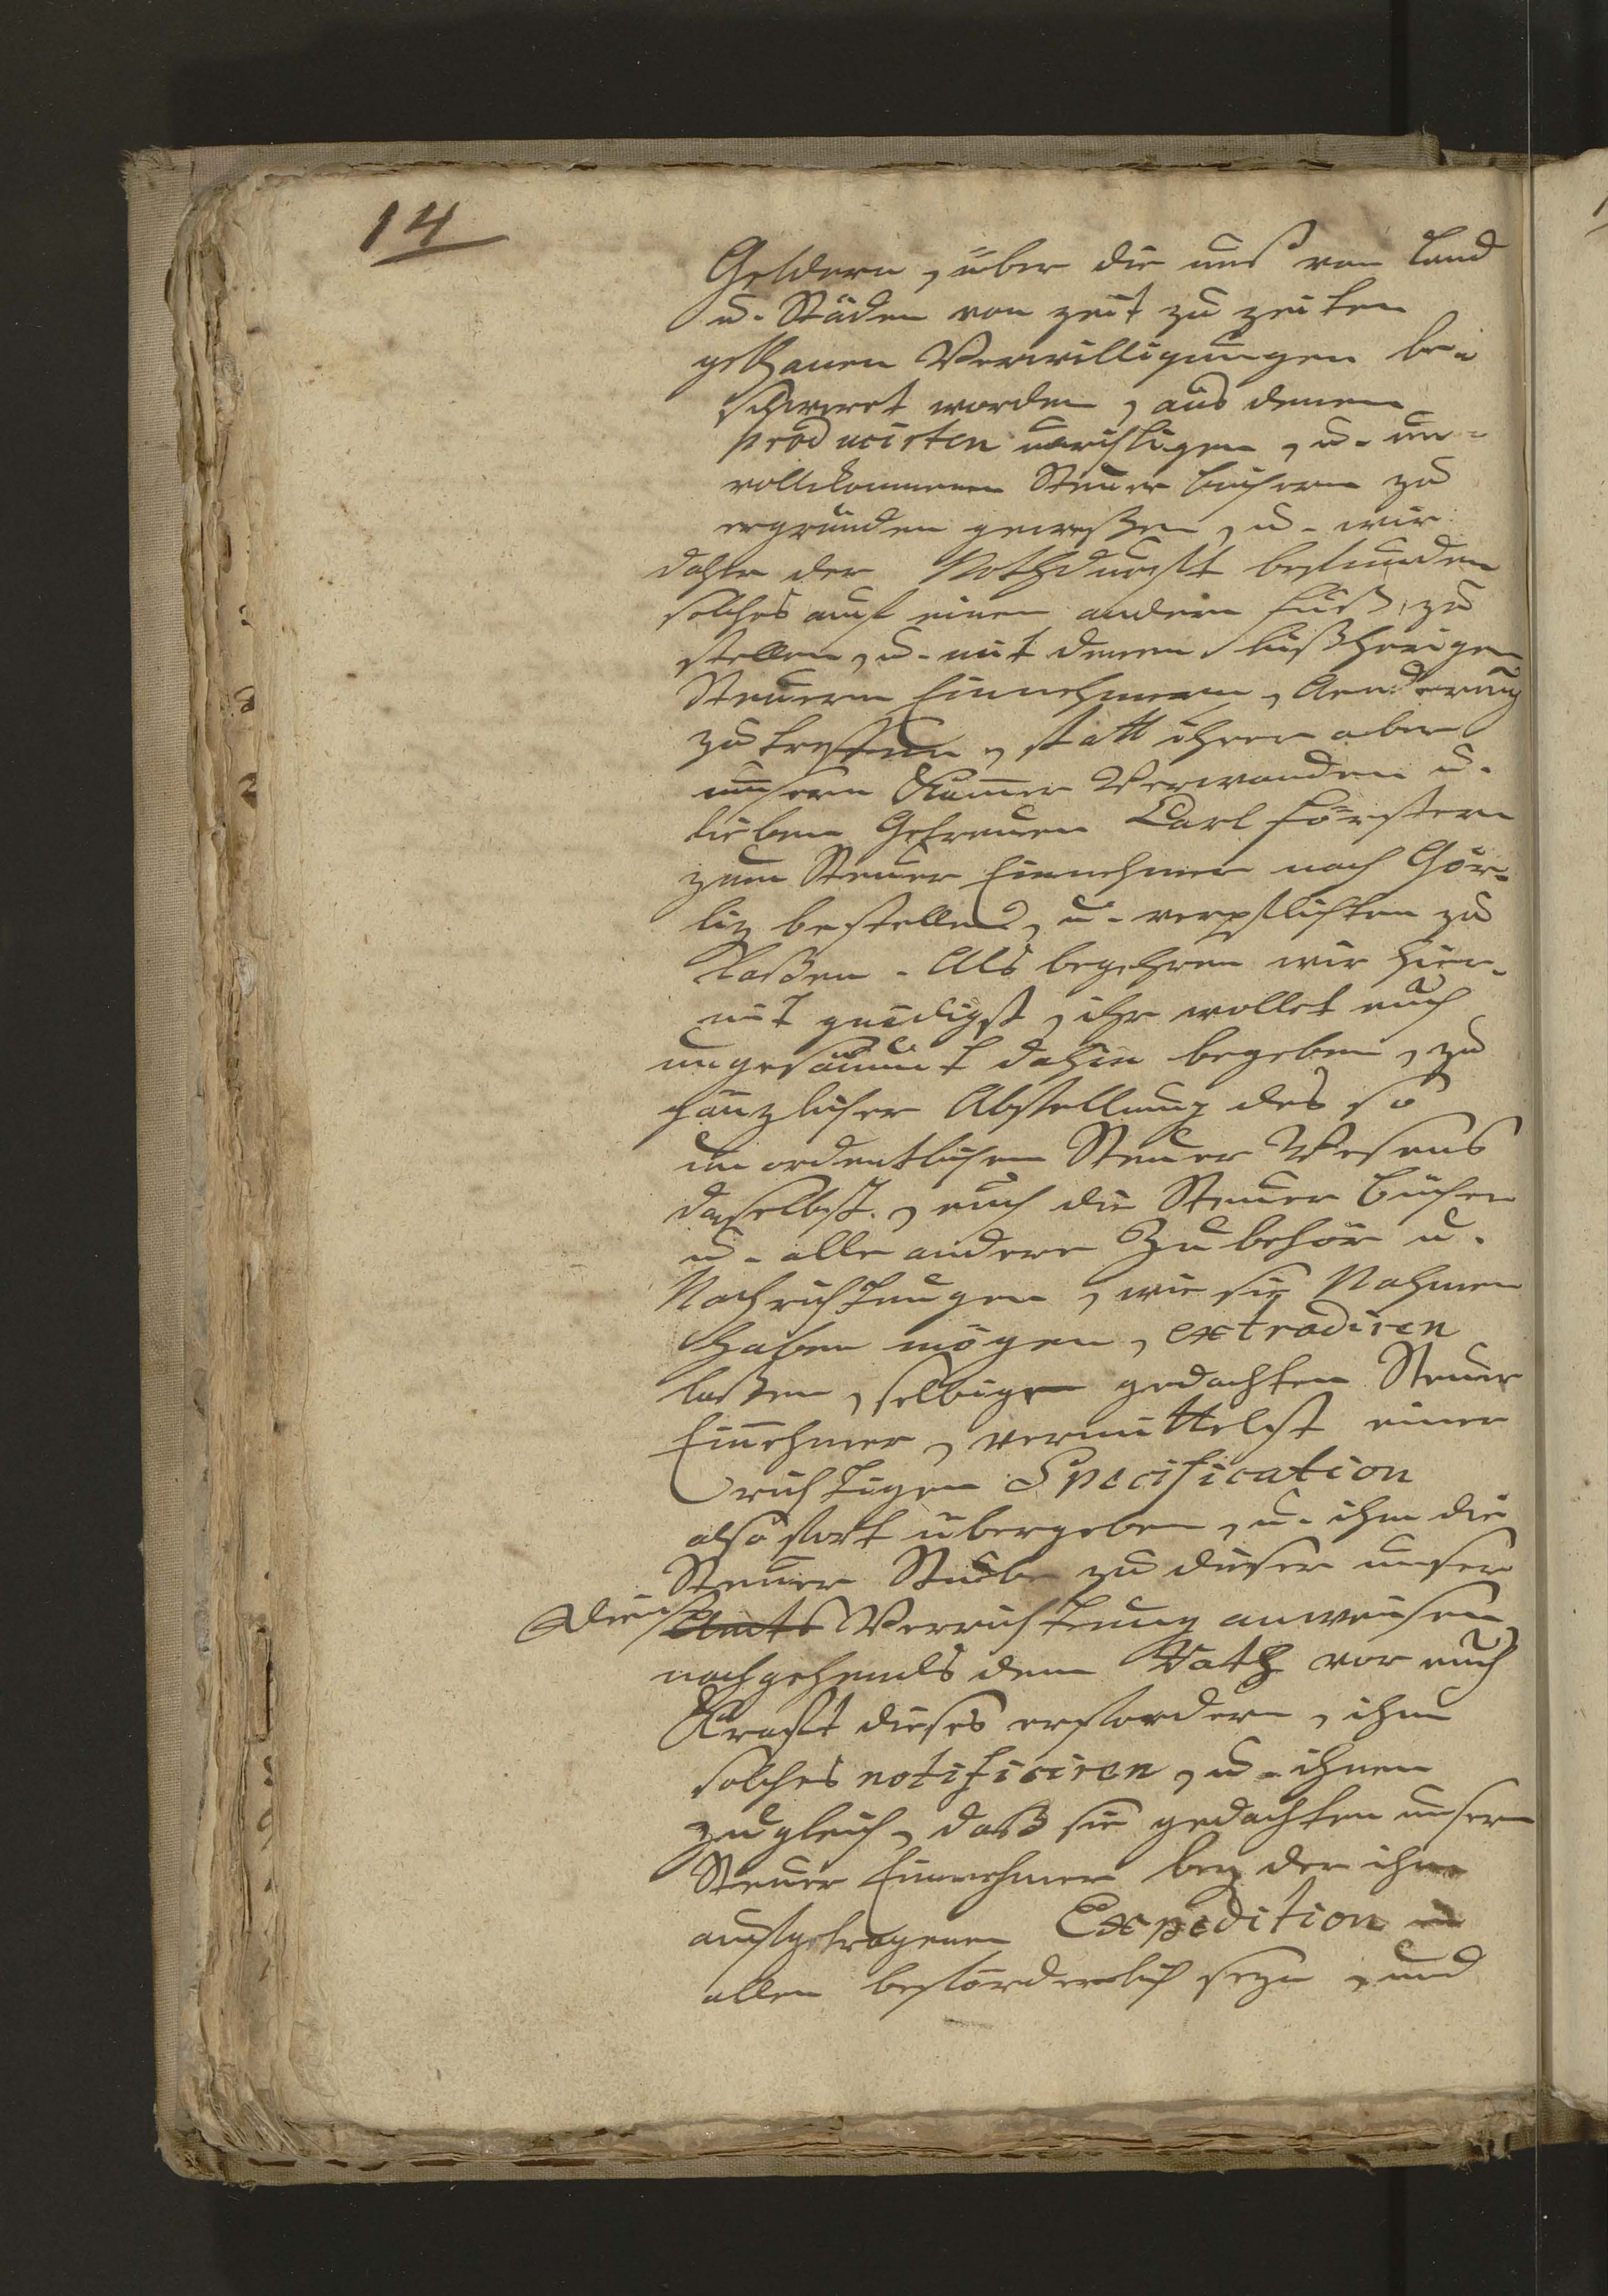 14
Geldern, über die uns von Land
u. Städen von zeit zu zeiten
gethanen Verwilligungen be-
schweret worden, aus denen
producirten unrichtigen, u. un-
vollkommenen Steuer büchern zu
ergründen gewesen, u. wir
daher der Nothdurfft befunden
solches auf einen andern Fuß, zu
stellen, u. mit denen bißherigen
Steuern Einnehmern, Aenderung
zu treffen, statt ihrer aber
unsern Kammer Verwanden u.
lieben Getreuen Carl Förstern
zum Steuer Einnehmer nach Gör-
liz bestellen, u. verpflichten zu
laßen. Als begehren wir hier-
mit gnädigst, ihr wollet euch
ungesäumt dahin begeben, zu
gänzlicher Abstellung des so
un ordentlichen Steuer Wesens
daselbst, euch die Steuer bücher
u. alle andere Zubehör u.
Nachrichtungen, wie sie Nahmen
haben mögen, extradiren
laßen, selbigen gedachten Steuer
Einnehmer, vermittelst einer
richtigen Specification
also fort übergeben, u. ihm die
Steuer Stube zu dieser unser
Dienst Amts Verrichtung anweisen
nachgehends dem Rath vor euch
Krafft dieses erfordern, ihm
solches notificiren, u. ihnen
zugleich, daß sie gedachten unsern
Steuer Einnehmer bey der ihm
aufgetragenen Expedition in
allen beförderlich seyn, und